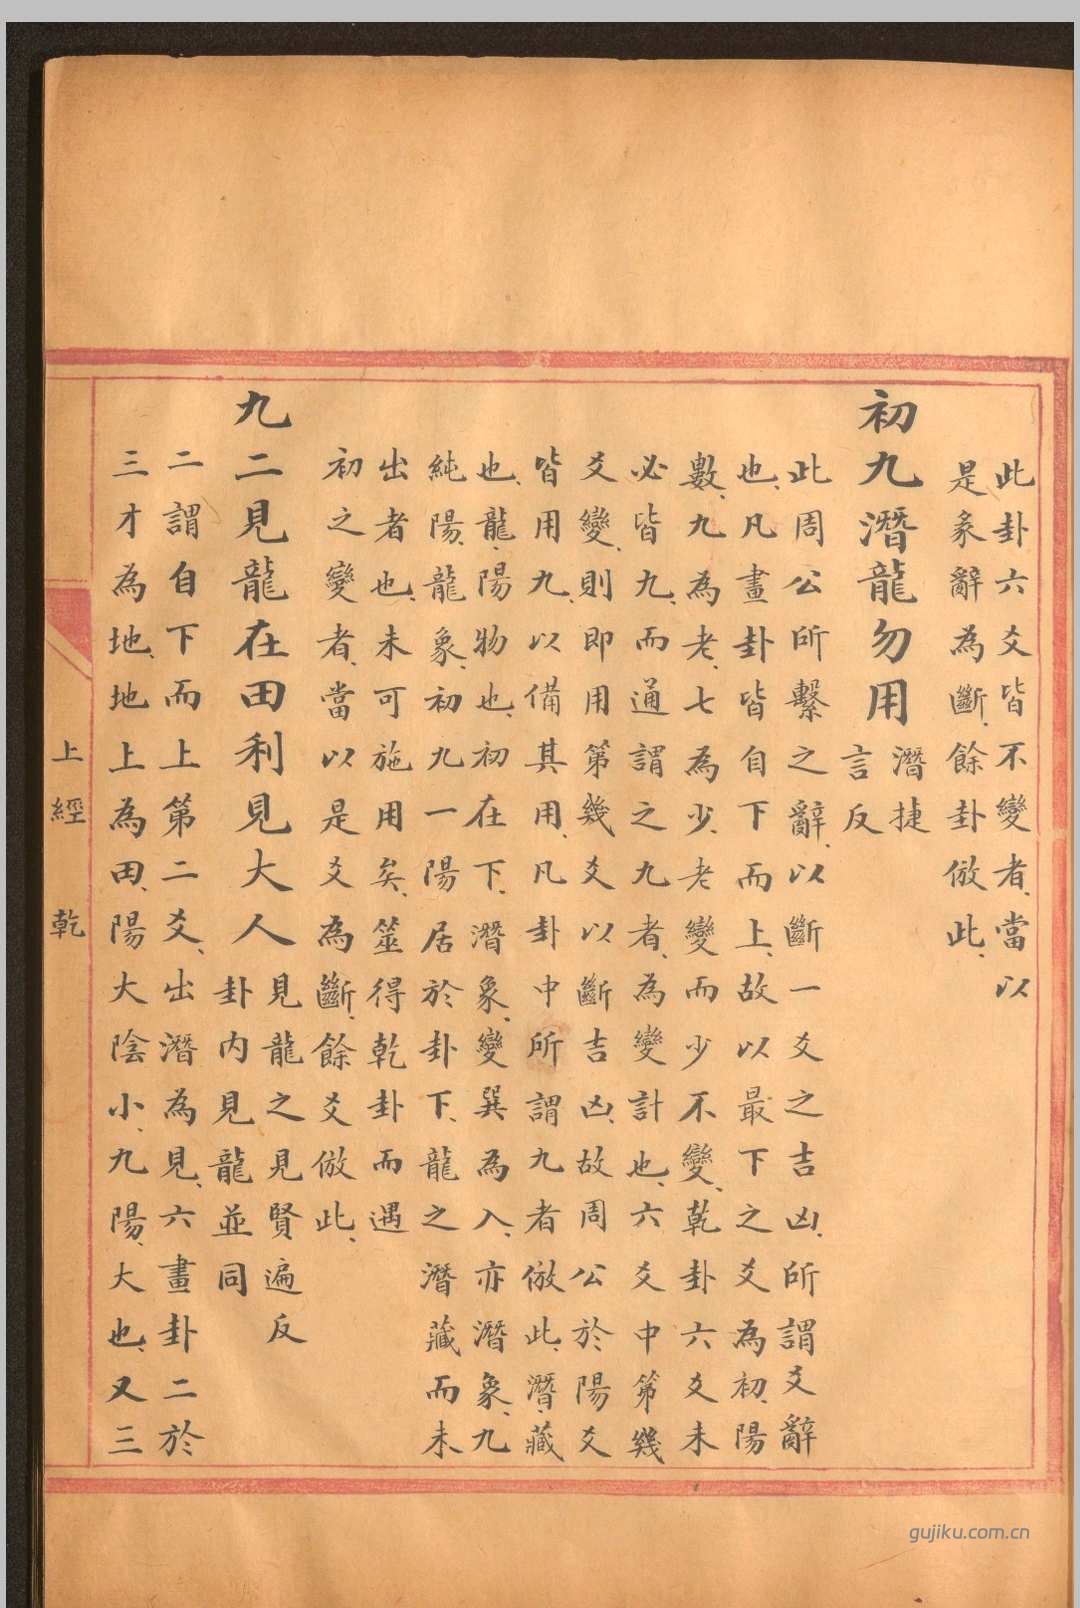 此卦六爻皆不變者、當以
是彖辭為斷、餘卦倣此、
初九潛龍勿用
潛捷
言反
此周公所繫之辭、以斷一爻之吉凶、所謂爻辭
也、凡畫卦皆自下而上、故以最下之爻為初、陽
數、九為老、七為少、老變而少不變、乾卦六爻未
必皆九、而通謂之九者、為變計也、六爻中第幾
爻變、則即用第幾爻以斷吉凶、故周公於陽爻
皆用九、以備其用、凡卦中所謂九者倣此、潛、藏
也、龍、陽物也、初在下、潛象、變巽為入、亦潛象、九
純陽、龍象、初九一陽居於卦下、龍之潛藏而未
出者也、未可施用矣、筮得乾卦而遇
初之變者、當以是爻為斷、餘爻倣此、
九二見龍在田利見大人
見龍之見賢遍反
卦内見龍並同
二謂自下而上第二爻、出潛為見、六畫卦二於
三才為地、地上為田、陽大陰小、九陽、大也、又三
上經 乾
gujiku.com.cn